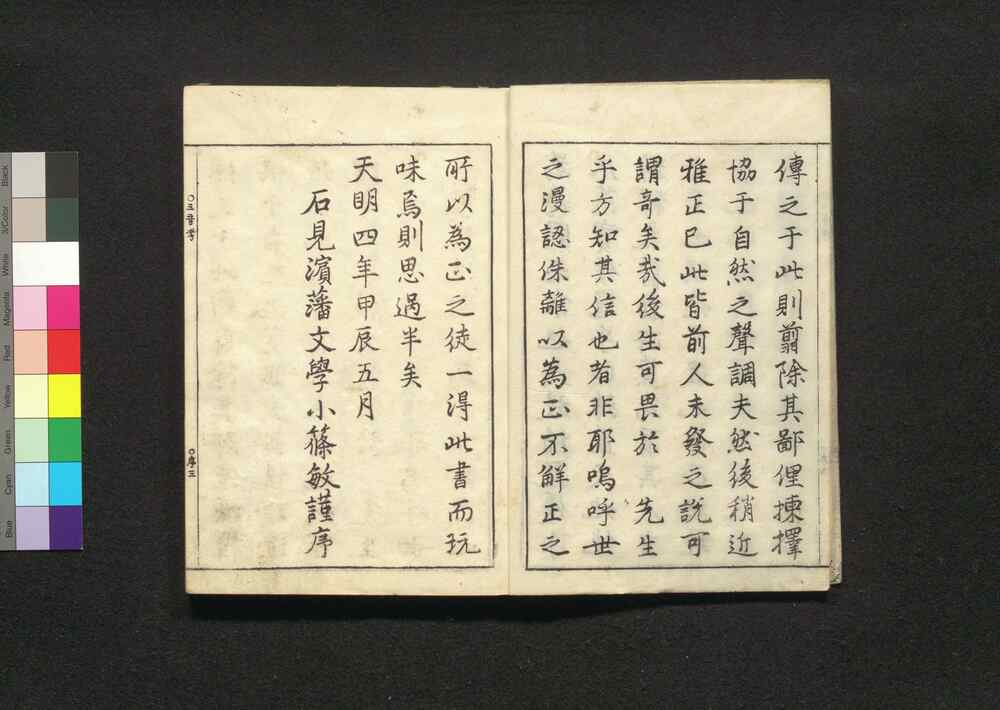 傳之于此則翦除其鄙俚揀擇
協于自然之聲調夫然後稍近
雅正已此皆前人未發之說可
謂奇矣哉後生可畏於 先生
乎方知其信也者非耶嗚呼世
之漫認侏離以為正不解正之
所以為正之徒一得此書而玩
味焉則思過半矣
天明四年甲辰五月
石見濱藩文學小篠敏謹序
○三音考
○序三
Black
3/Color
White
Magenta
Red
Yellow
Green
Cyan
Blue